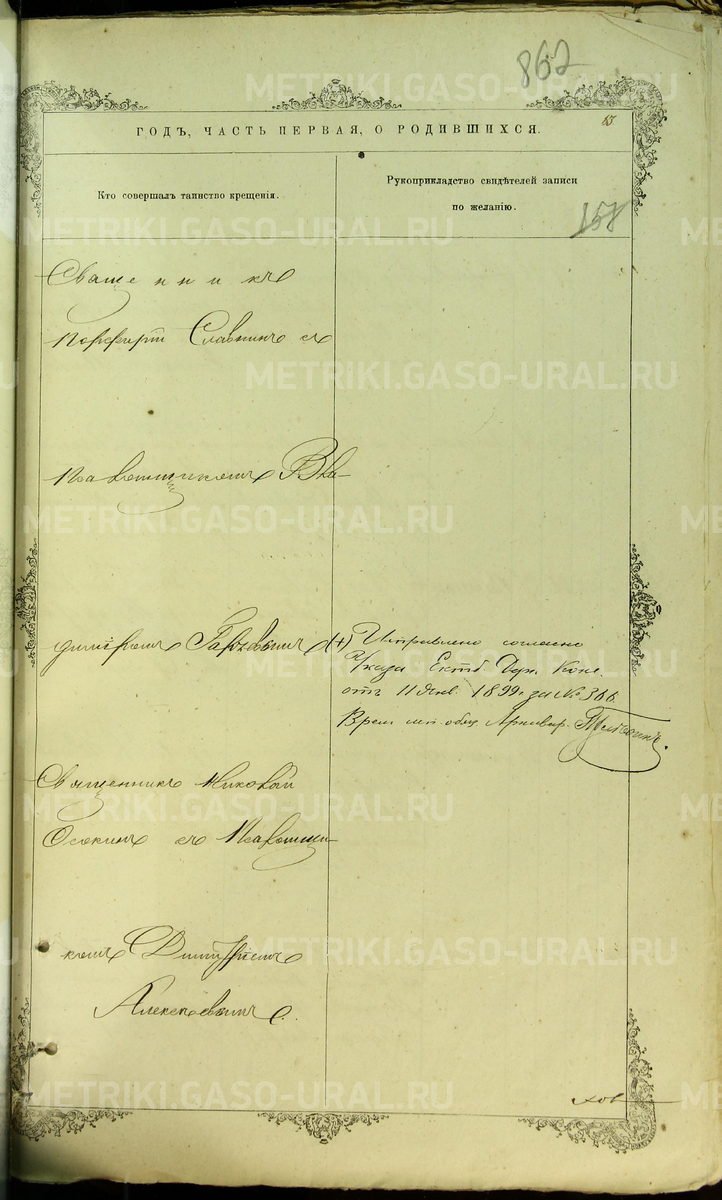 862
METRIKI.GASO-URAL.RU
ГОДЪ, ЧАСТЬ ПЕРВАЯ, О РОДИВШИХСЯ.
Кто совершалъ таинство крещенія.
Рукоприкладство свидѣтелей записи
по желанію.
157
METRIKI.GASO-URAL.RU
Священникъ
Порфирій Славнинъ съ
METRIKI.GASO-URAL.RU
Псаломщикомъ Вла-
METRIKI.GASO-URAL.RU
диміромъ
(+) Исправлено согласно
Указа Екат. Дух. Конс.
отъ 11 Янв. 1899 г. за № 366.
METRIKI.GASO-URAL.RU
Врем. Архивар.
Священникъ Николай
METRIKI.GASO-URAL.RU
Осокинъ съ Псаломщи-
METRIKI.GASO-URAL.RU
комъ Димитріемъ
Алексѣевымъ.
METRIKI.GASO-URAL.RU